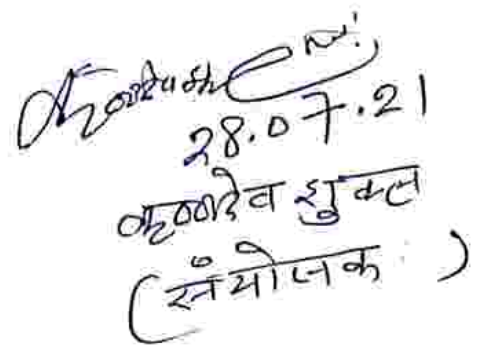 28.07.21
कृष्णदेव शुक्ल
(संयोजक)